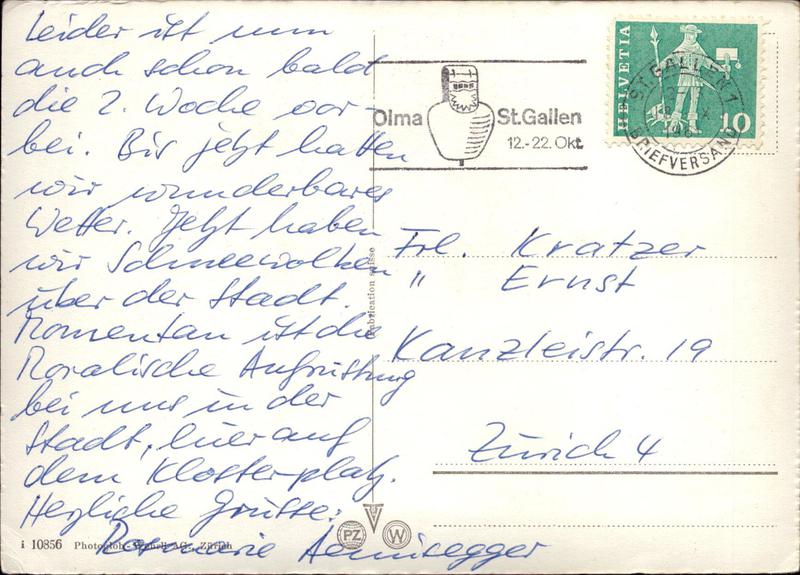 Leider ist nun
auch schon bald
die 2. Woche vor-
bei. Bis jetzt hatten
wir wunderbares
Wetter. Jetzt haben
wir Schneewolken
über der Stadt.
Momentan ist die
Moralische Aufrüstung
bei uns in der
Stadt, hier auf
dem Klosterplatz.
Herzliche Grüsse:
Rosmarie
i 10856 Photoglob-Wehrli AG., Zürich
Fabrication suisse
PZ
W
Olma St.Gallen
12.-22. Okt.
HELVETIA
10
ST. GALLEN 1
BRIEFVERSAND
Frl. Kratzer
" Ernst
Kanzleistr. 19
Zürich 4